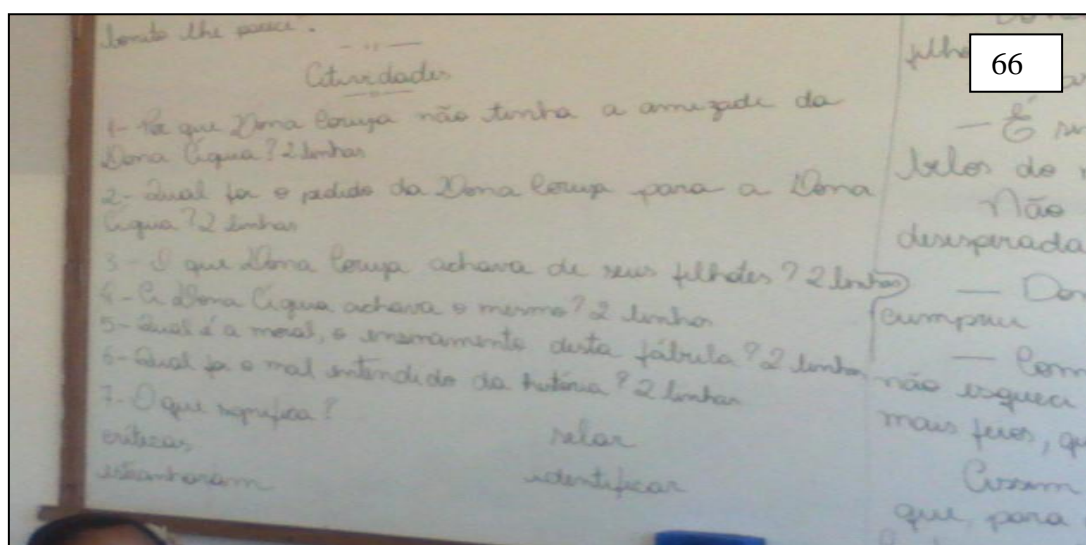 bonito lhe parece".
Atividades
1- Por que Dona Coruja não tinha a amizade da
Dona Águia? 2 linhas
2- Qual foi o pedido da Dona Coruja para a Dona
Águia? 2 linhas
3- O que Dona Coruja achava de seus filhotes? 2 linhas
4- A Dona Águia achava o mesmo? 2 linhas
5- Qual é a moral, o ensinamento desta fábula? 2 linhas
6- Qual foi o mal entendido da história? 2 linhas
7- O que significa?
críticas zelar
estranharam identificar
66
— É
belos do
Não
desesperada
—
cumpriu
— Com
não esqueci
mais feios, qu
Assim
que, para